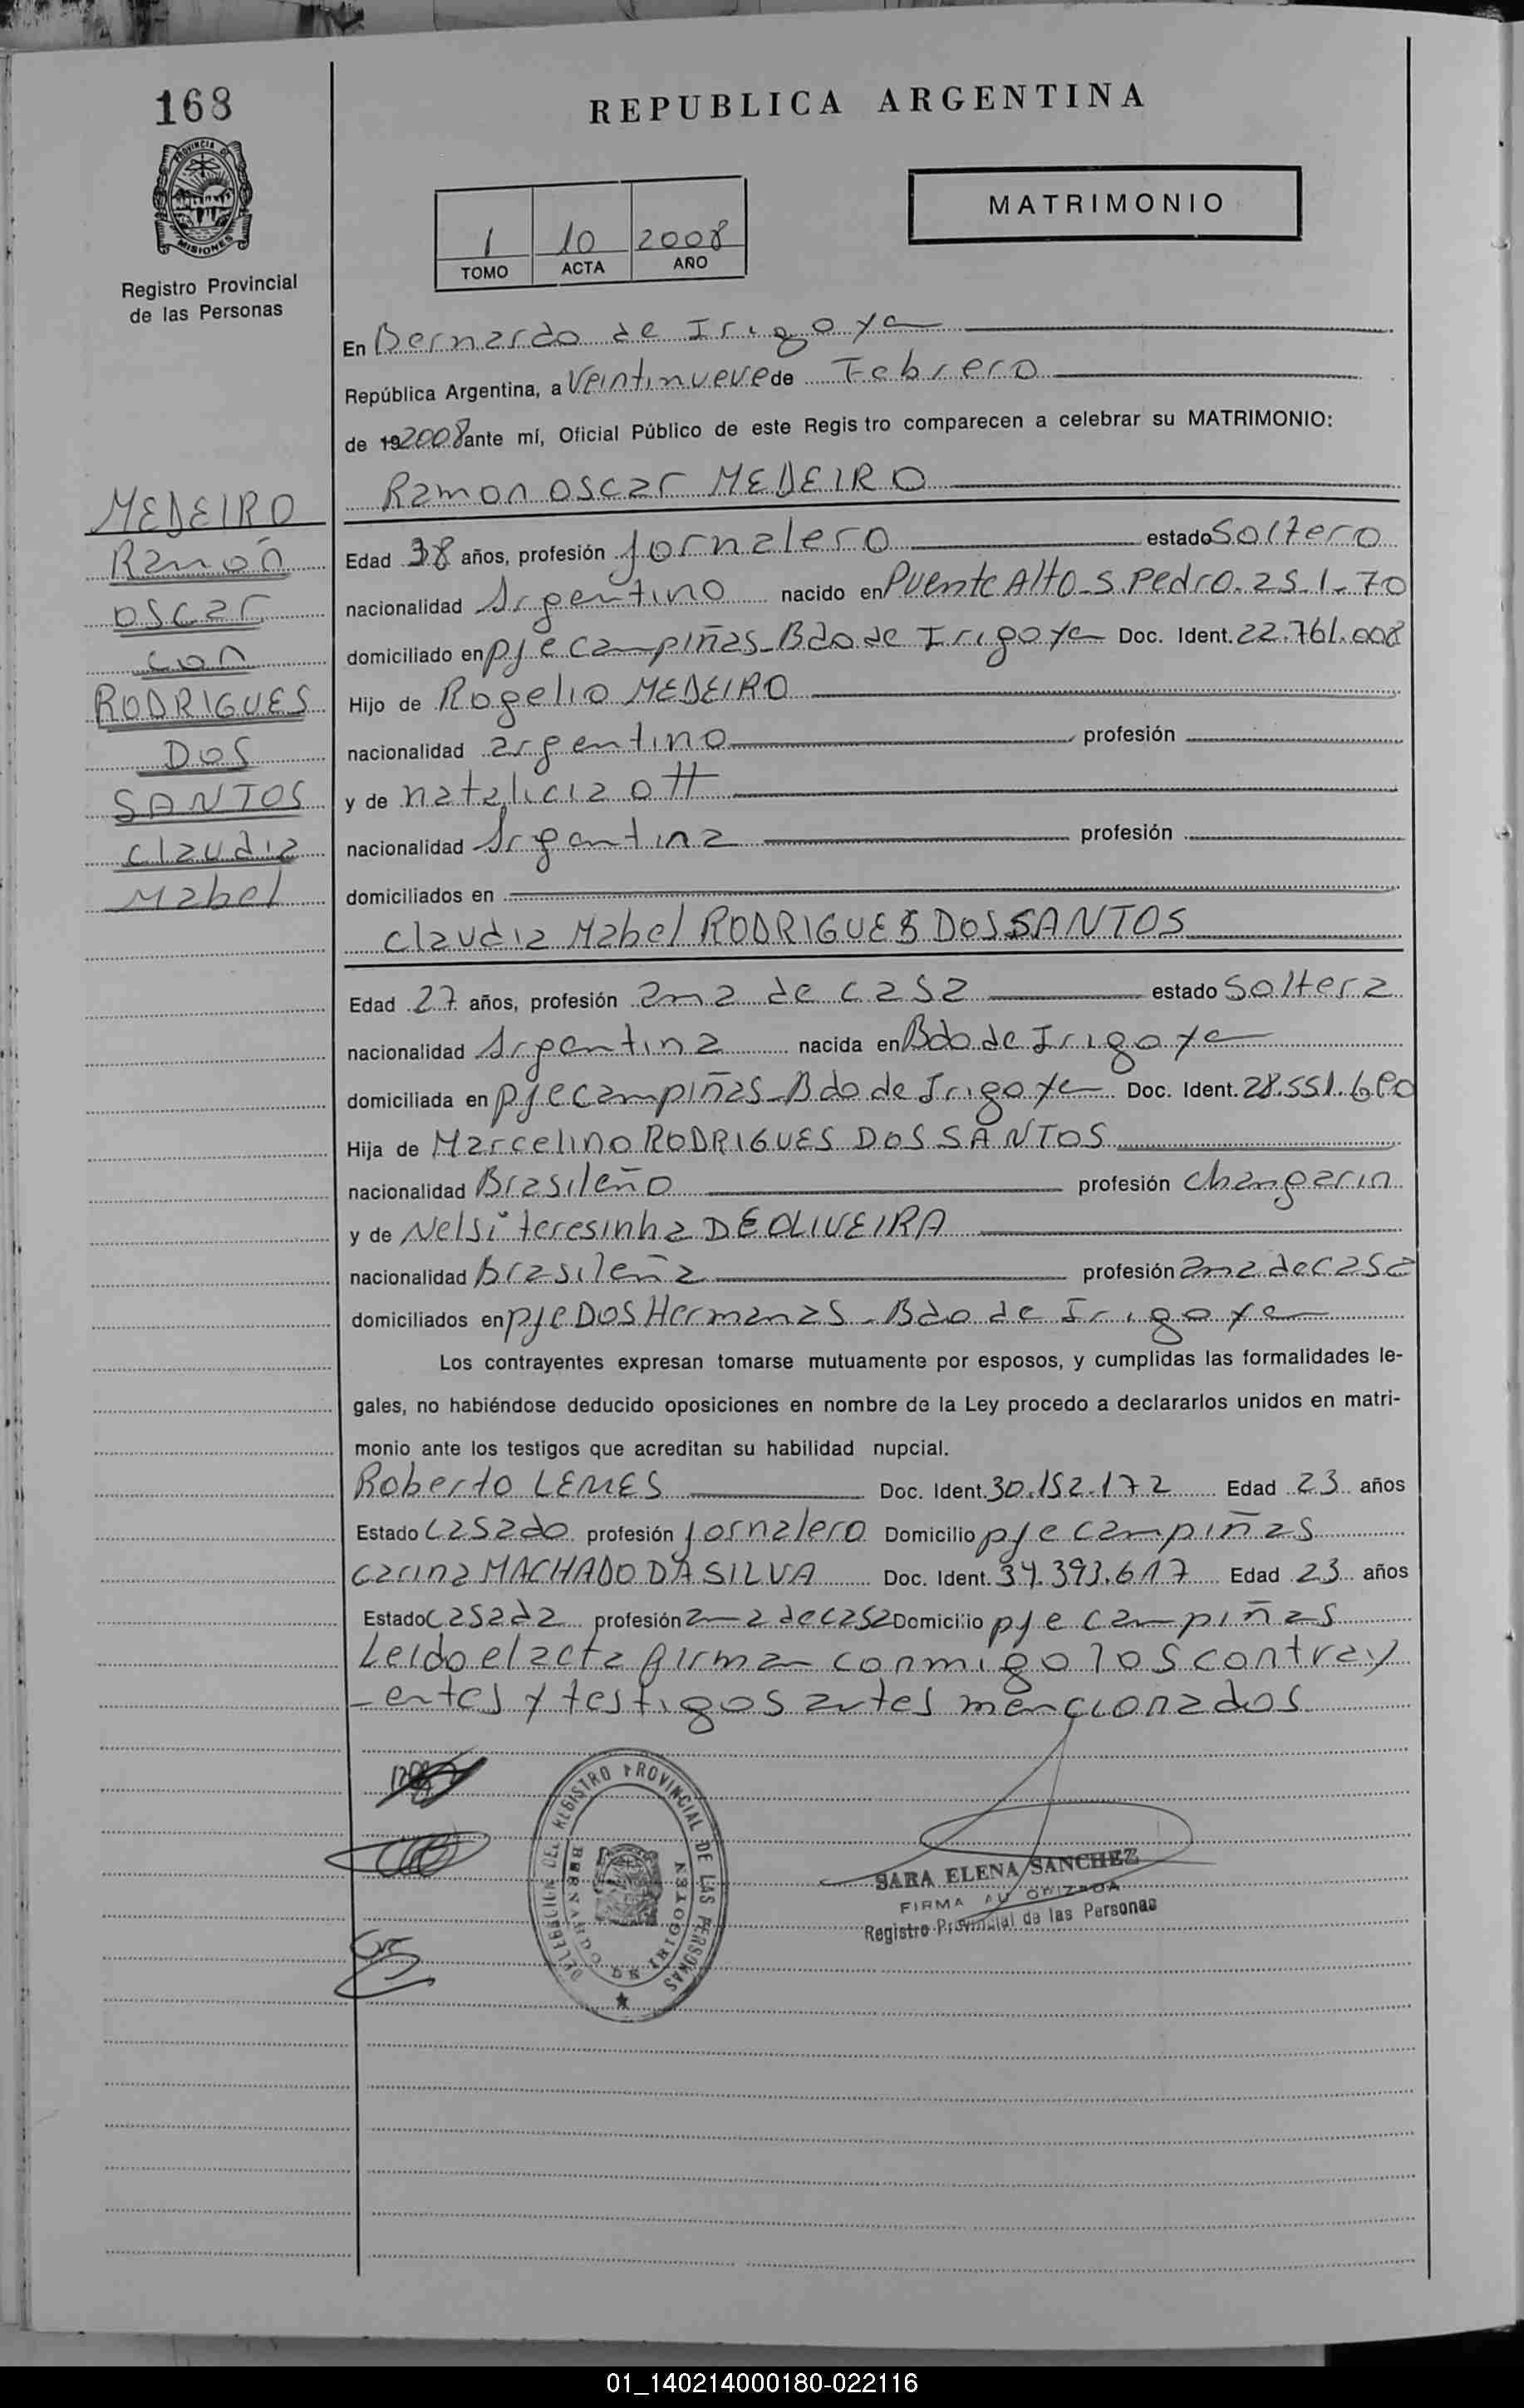 168
REPUBLICA ARGENTINA
PROVINCIA DE
MISIONES
Registro Provincial
de las Personas
MATRIMONIO
1 10 2008
TOMO ACTA AÑO
En Bernardo de Irigoye
República Argentina, a Veintinueve de Febrero
de 19 2008 ante mí, Oficial Público de este Regis tro comparecen a celebrar su MATRIMONIO:
Ramon oscar MEDEIRO
MEDEIRO
Ramón
oscar
con
RODRIGUES
DOS
SANTOS
claudia
Mabel
Edad 38 años, profesión Jornalero estado Soltero
nacionalidad Argentino nacido en Puente Alto-S.Pedro-25-1-70
domiciliado en pje campiñas-Bdo de Irigoye Doc. Ident. 22.761.008
Hijo de Rogelio MEDEIRO
nacionalidad argentino profesión
y de natalicia ott
nacionalidad Argentina profesión
domiciliados en
claudia Mabel RODRIGUES DOS SANTOS
Edad 27 años, profesión ama de casa estado Soltera
nacionalidad Argentina nacida en Bdo de Irigoye
domiciliada en pje campiñas-Bdo de Irigoye Doc. Ident.
Hija de Marcelino RODRIGUES DOS SANTOS
nacionalidad Brasileño profesión changarin
y de Nelsi teresinha DE OLIVEIRA
nacionalidad Brasileña profesión ama de casa
domiciliados en pje DOS Hermanas-Bdo de Irigoye
Los contrayentes expresan tomarse mutuamente por esposos, y cumplidas las formalidades le-
gales, no habiéndose deducido oposiciones en nombre de la Ley procedo a declararlos unidos en matri-
monio ante los testigos que acreditan su habilidad nupcial.
Roberto LEMES Doc. Ident. 30.152.172 Edad 23 años
Estado casado profesión Jornalero Domicilio pje campiñas
carina MACHADO DA SILVA Doc. Ident. 34.393.617 Edad 23 años
Estado casada profesión ama de casa Domicilio pje campiñas
Leido el acta firman conmigo los contray
-entes y testigos antes mencionados
DELEGACION DEL REGISTRO PROVINCIAL DE LAS PERSONAS
BERNARDO DE IRIGOYEN
SARA ELENA SANCHEZ
FIRMA AUTORIZADA
Registro Provincial de las Personas
01_140214000180-022116